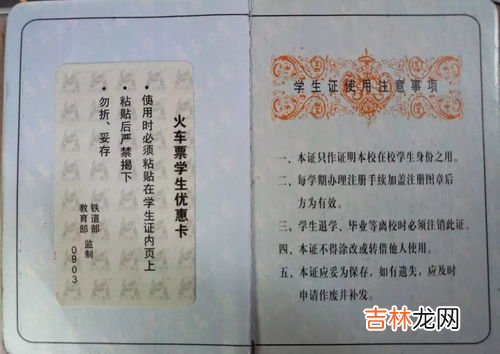 火车票学生优惠卡
• 使用时必须粘贴在学生证内页上
• 粘贴后严禁揭下
• 勿折、妥存
铁道部
教育部 监制
0903
学生证使用注意事项
一、本证只作证明本校在校学生身份之用。
二、每学期办理注册手续加盖注册图章后
方为有效。
三、学生退学、毕业等离校时必须注销此证。
四、本证不得涂改或转借他人使用。
五、本证应妥为保存，如有遗失，应及时
申请作废并补发。
吉林龙网